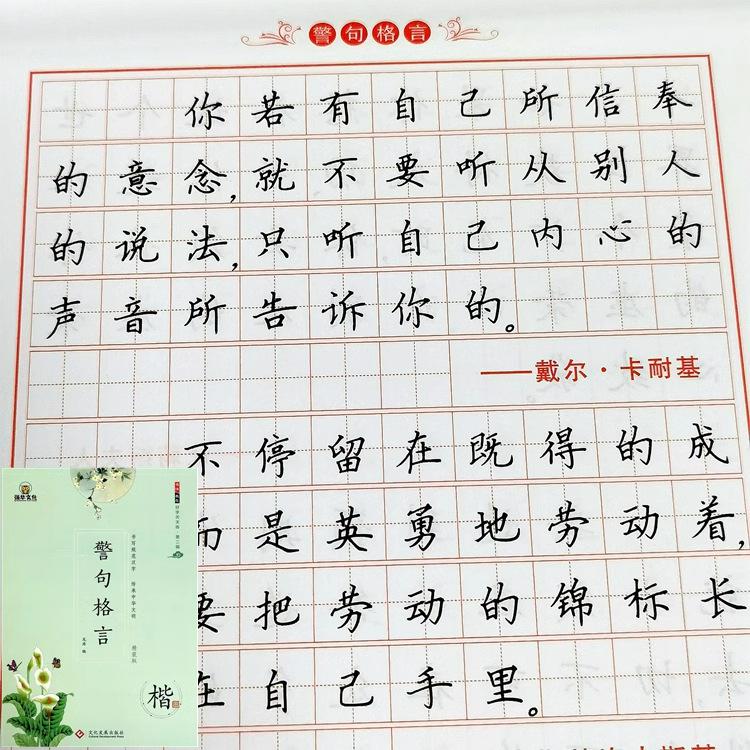 警句格言
你若有自己所信奉
的意念,就不要听从别人
的说法,只听自己内心的
声音所告诉你的。
——戴尔·卡耐基
不停留在既得的成
而是英勇地劳动着,
要把劳动的锦标长
在自己手里。
警句格言
书写规范汉字 传承中华文明
精装版
楷
文化发展出版社